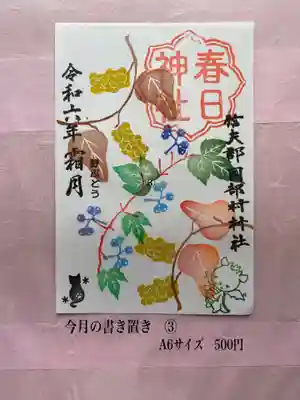 春日
神社
信夫郡岡部村神社
野ぶどう
令和六年 霜月
今月の書き置き ③
A6サイズ 500円